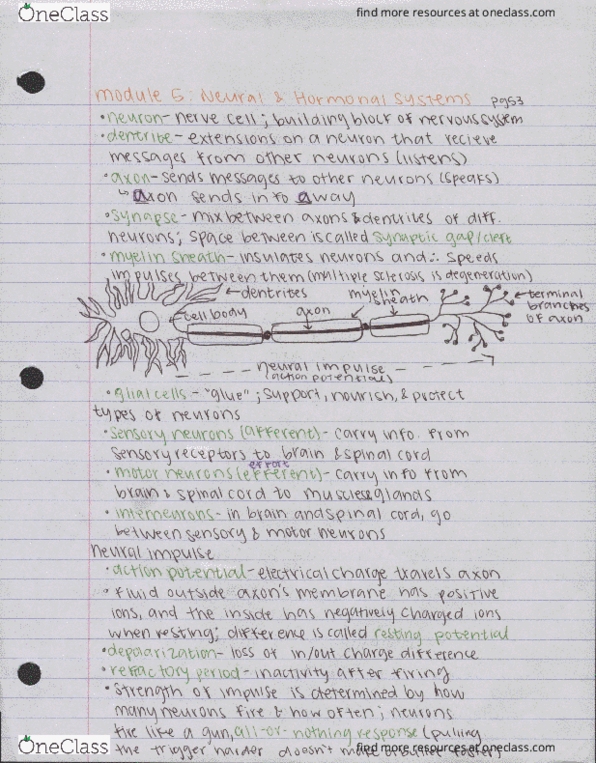 OneClass
find more resources at oneclass.com
module 5: Neural & Hormonal Systems pg53
• neuron - nerve cell; building block of nervous system
• dentrite - extensions on a neuron that recieve
messages from other neurons (listens)
• axon - sends messages to other neurons (speaks)
↳ axon sends info away
• synapse - mix between axons & dentrites of diff.
neurons; space between is called synaptic gap/cleft
• myelin sheath - insulates neurons and ∴ speeds
impulses between them (multiple sclerosis is degeneration)
←dentrites
cell body
axon
myelin
sheath
←terminal
branches
of axon
neural impulse
(action potential)
• glial cells - "glue"; support, nourish, & protect
types of neurons
• sensory neurons (afferent) - carry info. from
sensory receptors to brain & spinal cord
effort
• motor neurons (efferent) - carry info from
brain & spinal cord to muscles & glands
• interneurons - in brain and spinal cord, go
between sensory & motor neurons
neural impulse
• action potential - electrical charge travels axon
• fluid outside axon's membrane has positive
ions, and the inside has negatively charged ions
when resting; difference is called resting potential
• depolarization - loss of in/out charge difference
• refractory period - inactivity after firing
• strength of impulse is determined by how
many neurons fire & how often; neurons
fire like a gun, all-or-nothing response (pulling
the trigger harder doesn't make
OneClass
find more resources at oneclass.com